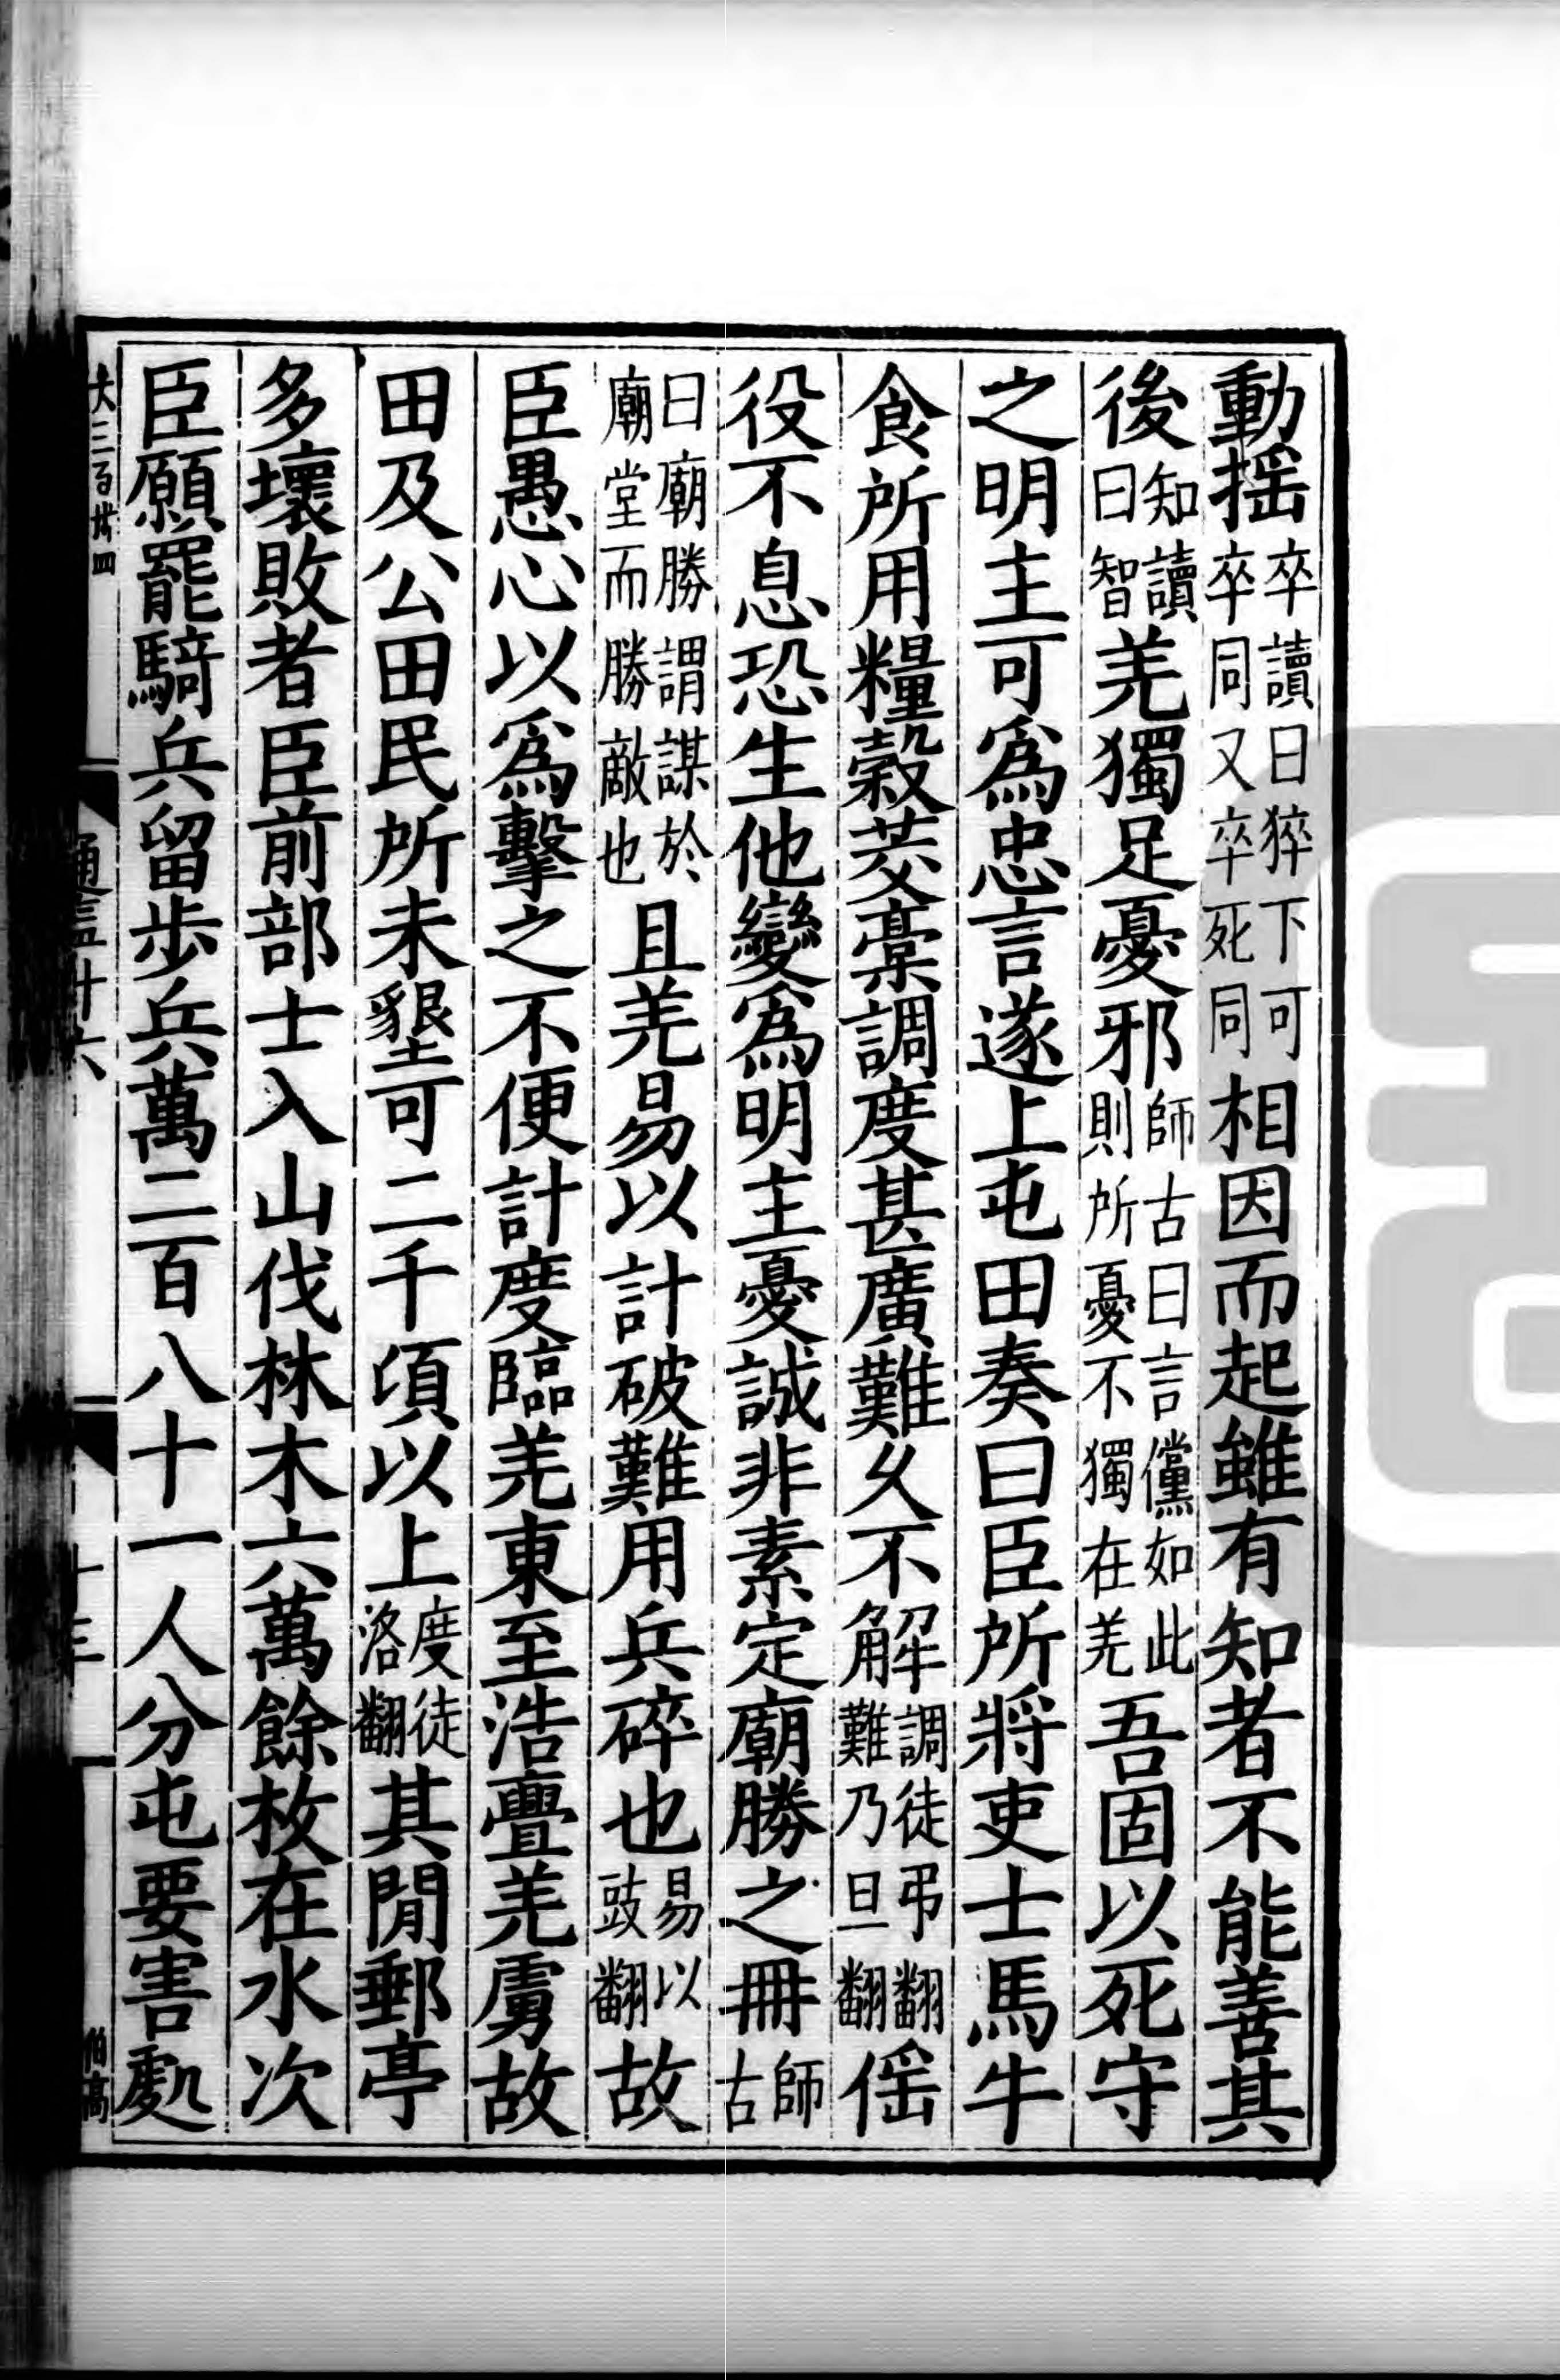 動揺卒讀曰猝下可卒同又卒死同相因而起雖有知者不能善其
後知讀曰智羌獨足憂邪師古曰言儻如此則所憂不獨在羌吾固以死守
之明主可爲忠言遂上屯田奏曰臣所將吏士馬牛
食所用糧榖茭稾調度甚廣難乆不解調徒弔翻難乃旦翻傜
役不息恐生他變爲明主憂誠非素定廟勝之冊師古
曰廟勝謂謀於廟堂而勝敵也且羌易以計破難用兵碎也易以豉翻故
臣愚心以爲擊之不便計度臨羌東至浩亹羌虜故
田及公田民所未墾可二千頃以上度徒洛翻其閒郵亭
多壞敗者臣前部士入山伐林木六萬餘枚在水次
臣願罷騎兵留歩兵萬二百八十一人分屯要害處
通鑑廿六
伯高